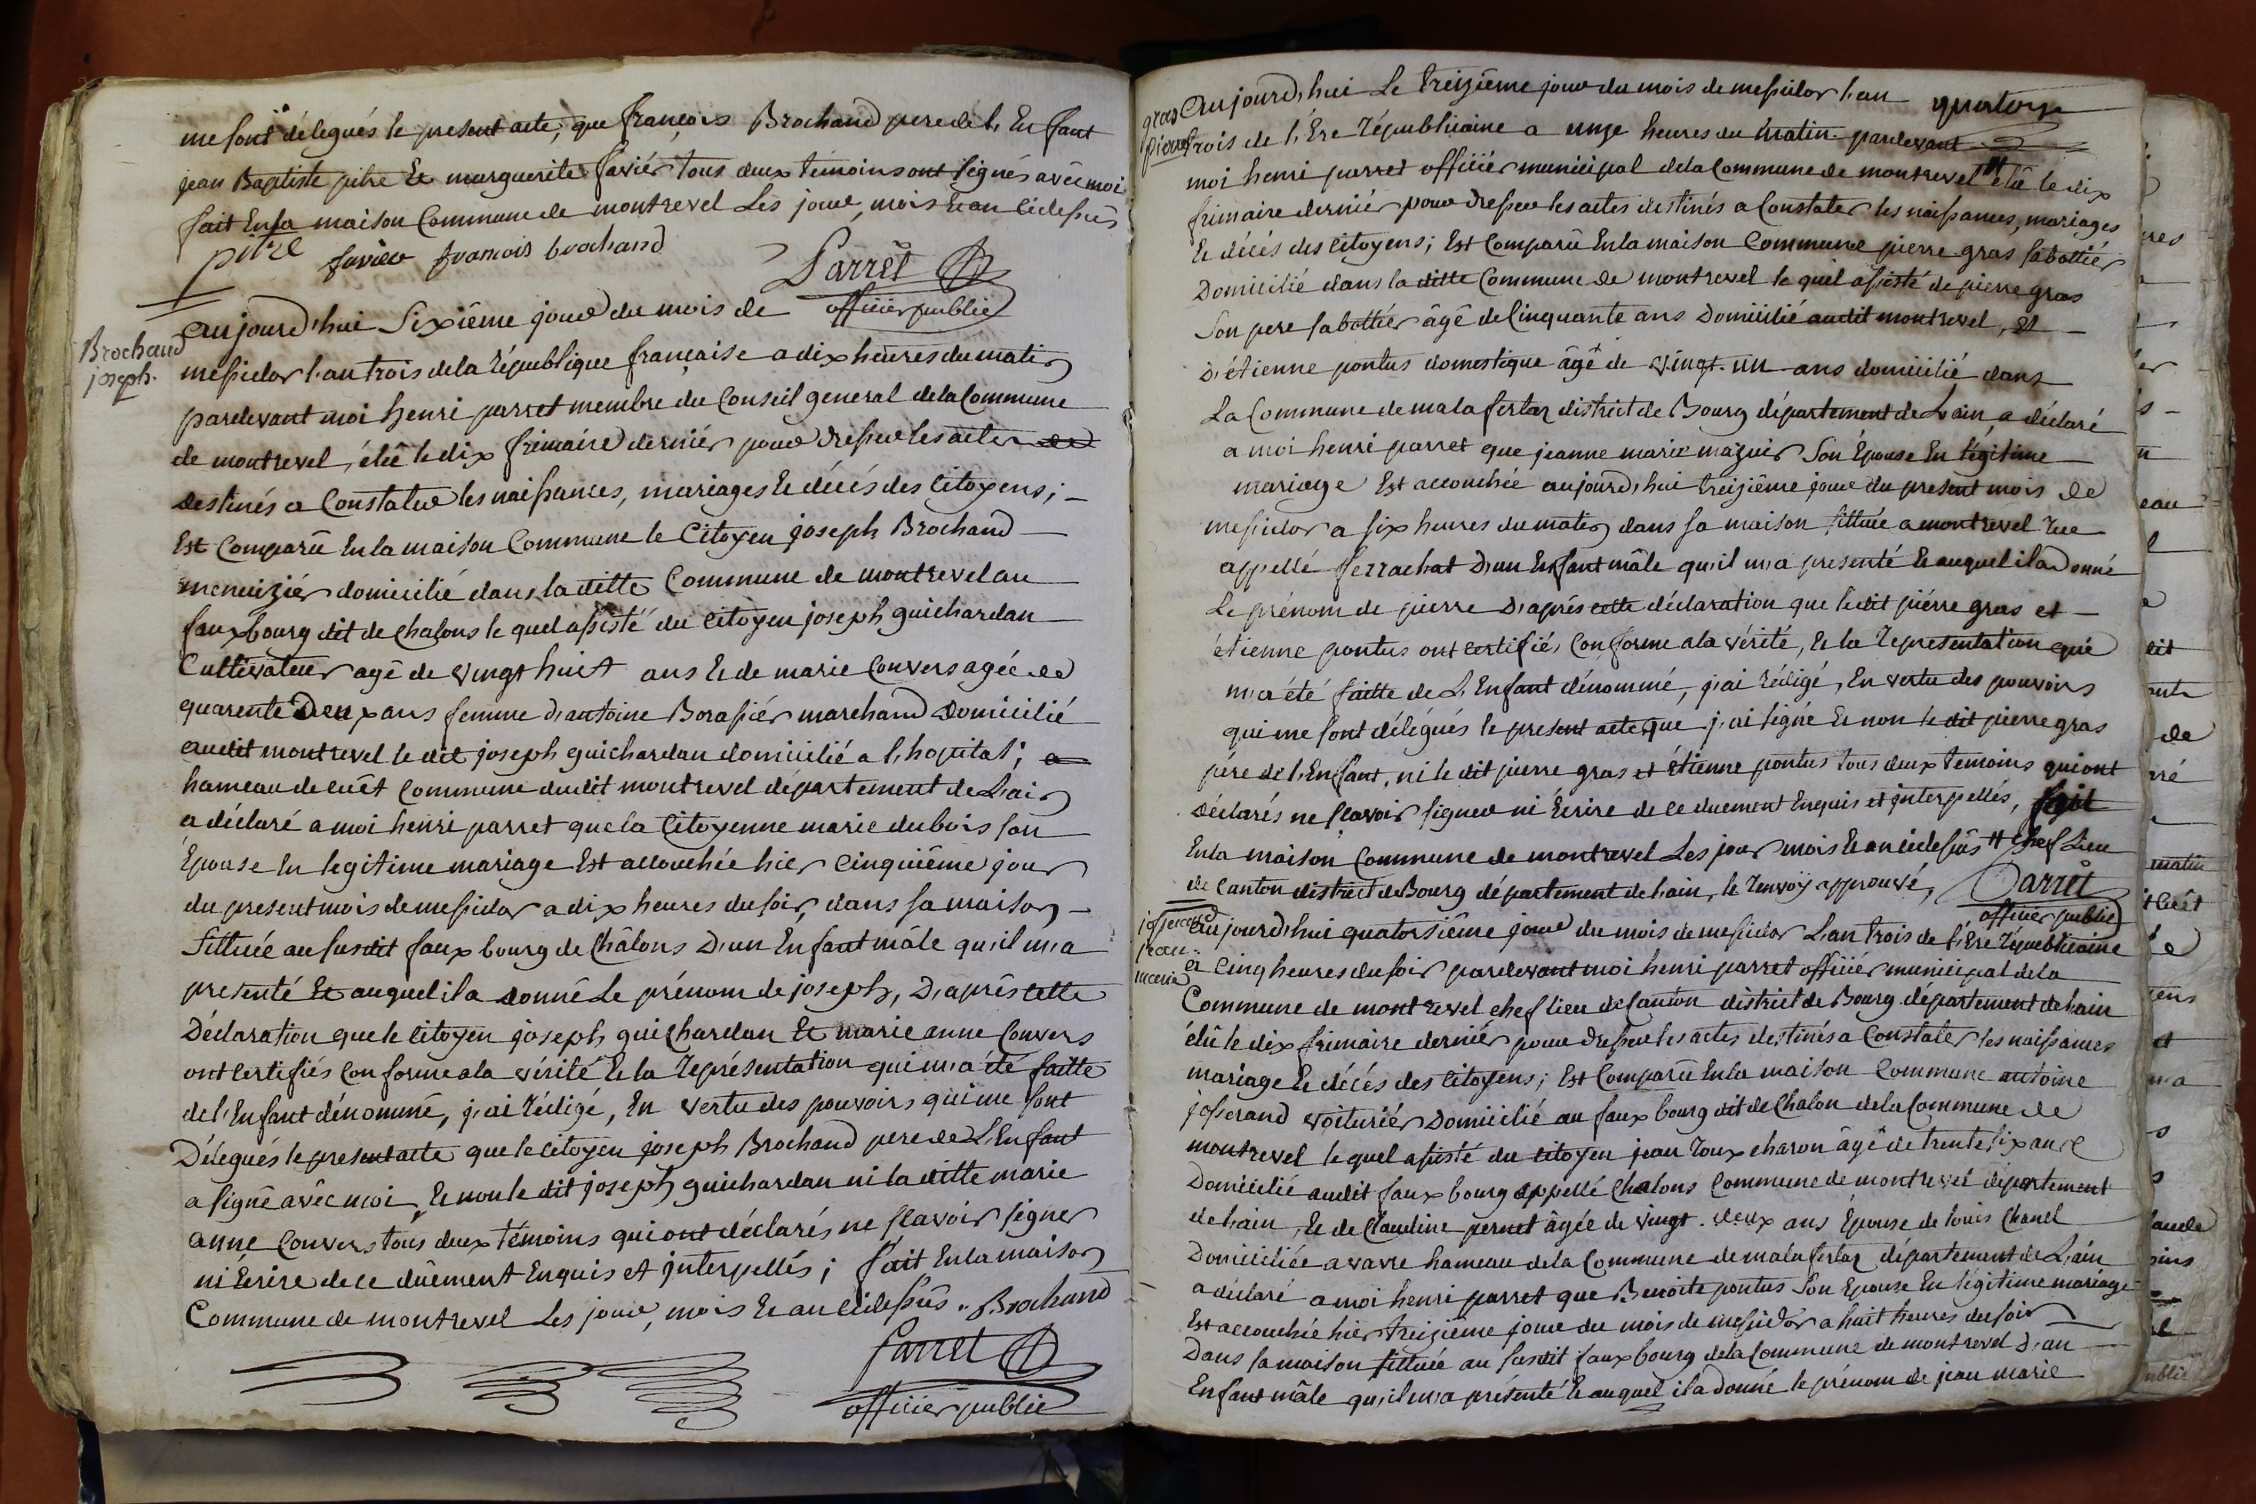 me sont délegués le present acte, que françois Brochand pere de l'Enfant
jean Baptiste pitre Et marguerite favier tous deux témoins ont signés avêc moi
fait En la maison Commune de montrevel Les jour, mois Et an cidessus
pitre favier francois brochand Parret
officier public
Brochand
joseph.
aujourd'hui Sixiême jour du mois de
messidor l'an trois de la république française a dix heures du matin
pardevant moi henri parret membre du Conseil general dela Commune
de montrevel, élû le dix frimaire dernier pour dresser les actes
destinés a Constater les naissances, mariages Et décés des Citoyens;
Est Comparû En la maison Commune le Citoyen joseph Brochand
menuizier domicilié dans la ditte Commune de montrevel au
fauxbourg dit de Chalons le quel assisté du citoyen joseph guichardan
Cultivateur agé de vingt huit ans Et de marie Convers agée de
quarente Deux ans femme d'antoine Borassiér marchand Domicilié
audit montrevel le dit joseph guichardan domicilié a l'hopital;
hameau de cuêt Commune dudit montrevel département de L'ain
a déclaré a moi henri parret que la Citoyenne marie dubois son
Epouse En legitime mariage Est accouchée hier Cinquiême jour
du present mois de messidor a dix heures du soir, dans sa maison
Sittuée au susdit faux bourg de Châlons D'un Enfant mâle qu'il m'a
presenté Et auquel il a donné Le prénom de joseph, D'aprés cette
Déclaration que le Citoyen joseph guichardan Et marie anne Convers
ont certifiés Conforme a la vérité Et la représentation qui m'a été faitte
de l'Enfant dénommé, j'ai rédigé, En vertu des pouvoirs qui me sont
Délegués le present acte que le Citoyen joseph Brochand pere de L'Enfant
a signé avêc moi, Et non le dit joseph guichardan ni la ditte marie
anne Convers tous deux témoins qui ont déclarés ne sçavoir signer
ni Ecrire de ce dûement Enquis et jnterpellés; fait En la maison
Commune de montrevel Les jour, mois Et an cidessus. Brochand
Parret
officier public
gras
pierre
Aujourd'hui Le treiziême jour du mois de messidor l'an quatorze
trois de l'Ere républicaine a onze heures du matin pardevant
moi henri parret officiér municipal dela Commune de montrevel # élû le dix
frimaire derniér pour dresser les actes destinés a Constater les naissances, mariages
Et décés des citoyens; Est Comparû En la maison Commune pierre gras sabottiér
Domicilié dans la ditte Commune de montrevel le quel assisté de pierre gras
Son pere sabottiér âgé de Cinquante ans Domicilié audit montrevel, Et
D'étienne pontus domestique âgé de vingt-un ans domicilié dans
La Commune de malafertaz district de Bourg département de L'ain, a déclaré
a moi henri parret que jeanne marie mazuir Son Epouse En légitime
mariage Est accouchée aujourd'hui treiziême jour du present mois de
messidor a six heures du matin dans sa maison sittuée a montrevel rue
appellé ferrachat D'un Enfant mâle qu'il m'a presenté Et auquel il a Donné
Le prénom de pierre D'aprés cette déclaration que ledit piérre gras et
étienne pontus ont certifiés Conforme a la vérité, Et la representation qui
m'a été faitte de L'Enfant dénommé, j'ai rédigé, En vertu des pouvoirs
qui me sont délégués le present acte que j'ai signé Et non le dit pierre gras
pére de l'Enfant, ni le dit pierre gras et étienne pontus tous deux temoins qui ont
Déclarés ne sçavoir signer ni Ecrire de ce duement Enquis et jnterpellés, fait
En la maison Commune de montrevel Les jour mois Et an cidessûs # Chef Lieu
de Canton district de Bourg département de l'ain, le renvoÿ approuvé, Parret
officier public
josserand
jean-
marie
aujourd'hui quatorsiême jour du mois de messidor L'an trois de l'Ere républicaine
a Cinq heures du soir pardevant moi henri parret officiér municipal de la
Commune de montrevel chef lieu de Canton district de Bourg département de l'ain
élû le dix frimaire derniér pour dresser les actes destinés a Constater les naissances
mariage Et décés des Citoyens; Est Comparû En la maison Commune antoine
josserand voituriér Domicilié au faux bourg dit de Chalon de la Commune de
montrevel lequel assisté du citoyen jean roux charon âgé de trente six ans
Domicilié audit faux bourg appellé Chalons Commune de montrevel département
de l'ain, Et de Claudine pernet âgée de vingt-deux ans Epouse de louis Chanel
Domiciliée a vavre hameau de la Commune de malafertaz département de L'ain
a déclaré a moi henri parret que Benoite pontus Son Epouse En légitime mariage
Est accouchée hier treiziême jour du mois de messidor a huit heures du soir
Dans sa maison sittuée au susdit fauxbourg dela Commune de montrevel D'un
Enfant mâle qu'il m'a présenté Et auquel il a donné le prénom de jean marie